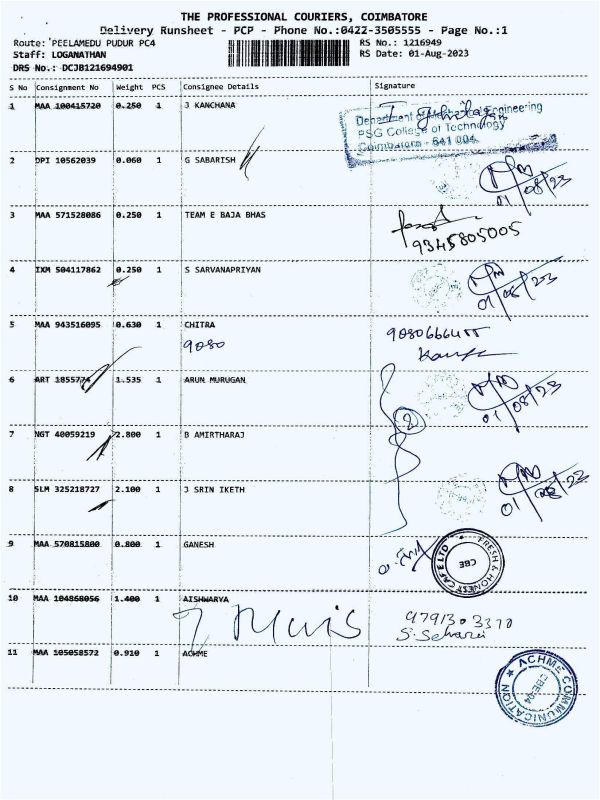 THE PROFESSIONAL COURIERS, COIMBATORE
Delivery Runsheet - PCP - Phone No.:0422-3505555 - Page No.:1
Route: PEELAMEDU PUDUR PC4 RS No.: 1216949
Staff: LOGANATHAN RS Date: 01-Aug-2023
DRS No.: DCJB121694901
S No Consignment No Weight PCS Consignee Details Signature
1 MAA 100415720 0.250 1 J KANCHANA
Department of Engineering
PSG College of Technology
Coimbatore - 641 004
2 DPI 10562039 0.060 1 G SABARISH
01/08/23
3 MAA 571528086 0.250 1 TEAM E BAJA BHAS
9345805005
4 IXM 504117862 0.250 1 S SARVANAPRIYAN
01/08/23
5 MAA 943516095 0.630 1 CHITRA
9080
6 ART 1.535 1 ARUN MURUGAN
01/08/23
2
7 NGT 40059219 2.800 1 B AMIRTHARAJ
8 SLM 325218727 2.100 1 J SRIN IKETH
9 MAA 570815800 0.800 1 GANESH
FRESH & HONEST CAFE LTD
CBE
10 MAA 104868056 1.400 1 AISHWARYA
11 MAA 105058572 0.910 1 ACHME
ACHME COMMUNICATION
CBE-04